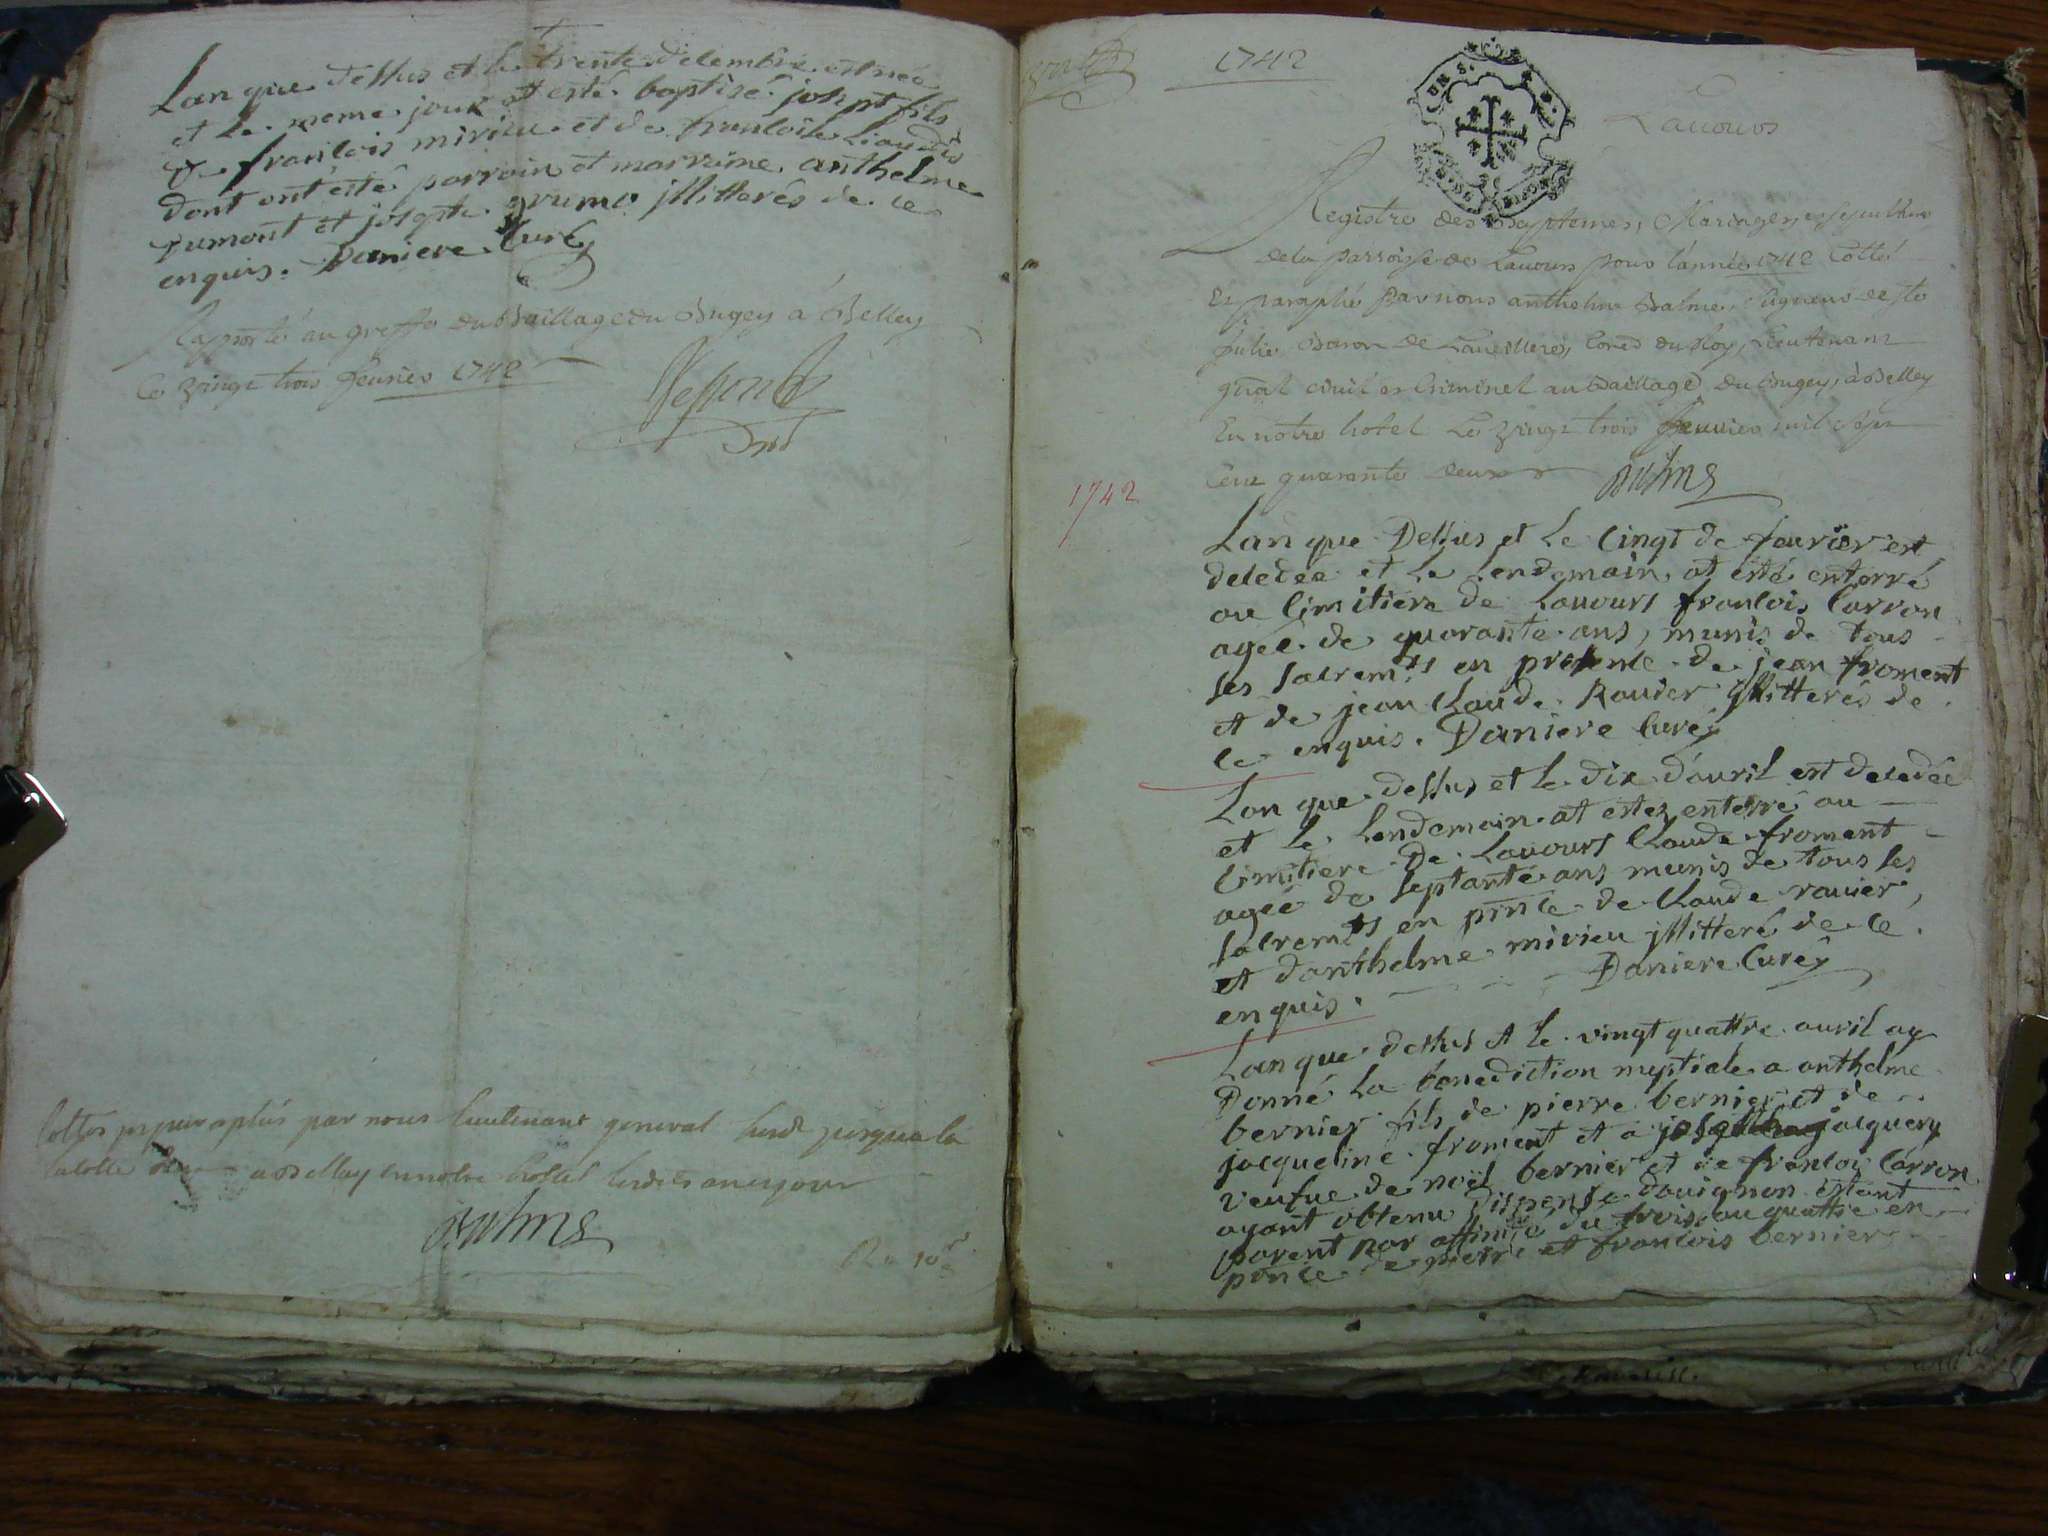 Lan que dessus et le trente decembre est née
et le meme jour at esté baptisé josept fils
de francois mivieu et de francoise
dont ont esté parrain et marraine anthelme
et josepte illitterés de ce
enquis. Daniere Curéy
Raporté au greffe du Baillage du Bugey à Belley
Ce vingt trois feuvrier 1742
Cottés et paraphés par nous lieutenant general jusqua la
a Belley en notre hotel
Balme
1742
Lauours
Registre des Baptemes, Mariages et sepulture
de la parroisse de Lauours pour l'année 1742 Cotté
Et paraphé par nous anthelme Balme, seigneur de ste
julie, Baron de Conser du Roy, Lieutenant
gnal ciuil et Criminel au Baillage du Bugey, à Belley
En notre hotel Le vingt trois feuurier mil sept
Cent quarante deux
Balme
1742
Lan que Dessus et Le Cingt de feurier est
decedée et Le Lendemain at esté enterré
au Cimitiere de Lauours francois Carron
agée de quarante ans, munis de tous
les sacremts en presence de jean froment
et de jean Claude Rauier illitterés de
ce enquis. Daniere Curéy
Lan que dessus et le dix dauril est decedée
et le Lendemain at estez enterré au
Cimitiere De Lauours Claude froment
agée de septante ans munis de tous les
sacremts en pnce de Claude rauier,
et danthelme mivieu illitteré de ce
enquis. Daniere Curéy
Lan que dessus et le vingt quattre auril ay
Donné La benediction nuptiale a anthelme
bernier fils de pierre bernier et de
jacqueline froment et a jacquery
veufue de noël bernier et de francois Carron
ayant obtenu dispense dauignon estant
parent par affinité du trois au quattre en
pnce de pierre et francois bernier